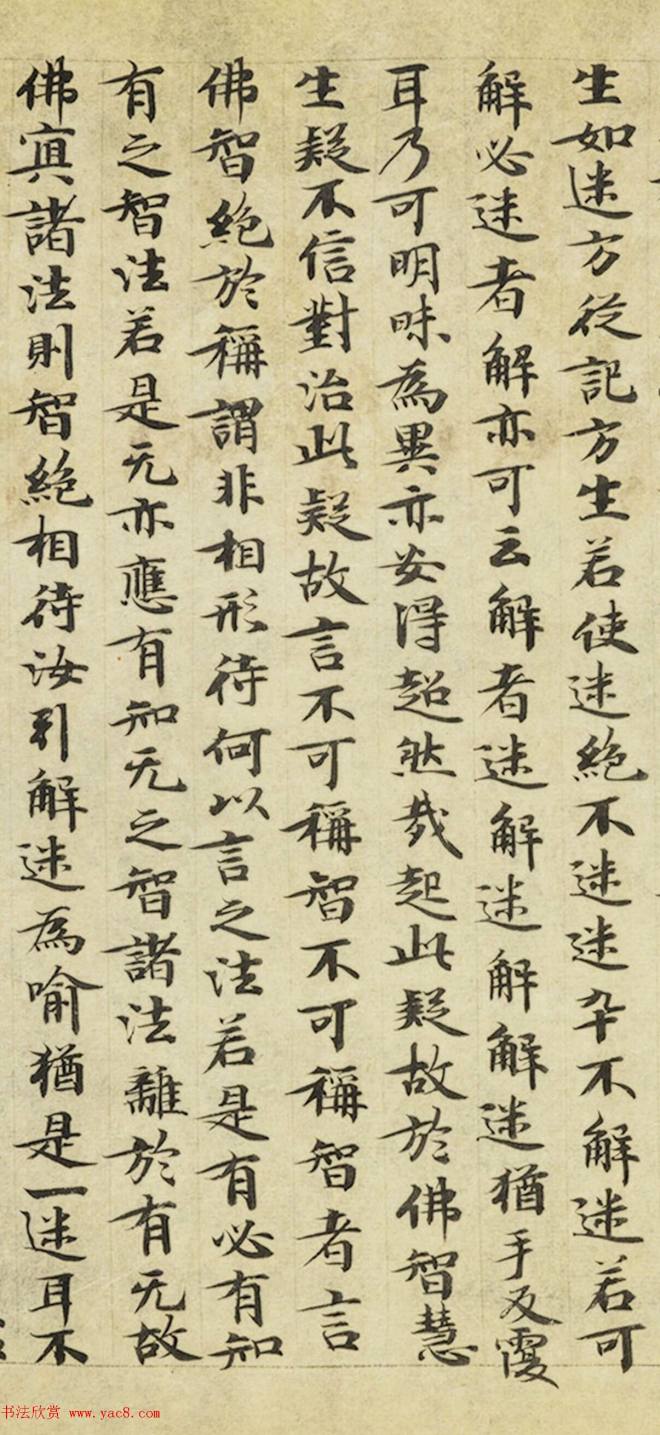 生如迷方從記方生若使迷絕不迷迷卒不解迷若可
解必迷者解亦可云解者迷解迷解解迷猶手反覆
耳乃可明昧為異亦安得超然哉起此疑故於佛智慧
生疑不信對治此疑故言不可稱智不可稱智者言
佛智絕於稱謂非相形待何以言之法若是有必有知
有之智法若是无亦應有知无之智諸法離於有无故
佛冥諸法則智絕相待汝引解迷為喻猶是一迷耳不
书法欣赏 www.yac8.com